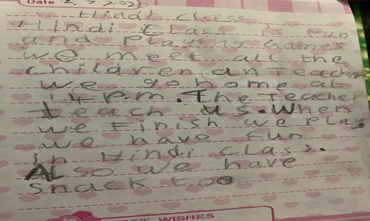 Date 2.5.202
Hindi class
Hindi class is fun
and playing games
we meet all the
children an teacher
we go home at
P.m. The teacher
teach us. When
we finish we play
we have fun
in Hindi class.
Also we have
snack too
BEST WISHES